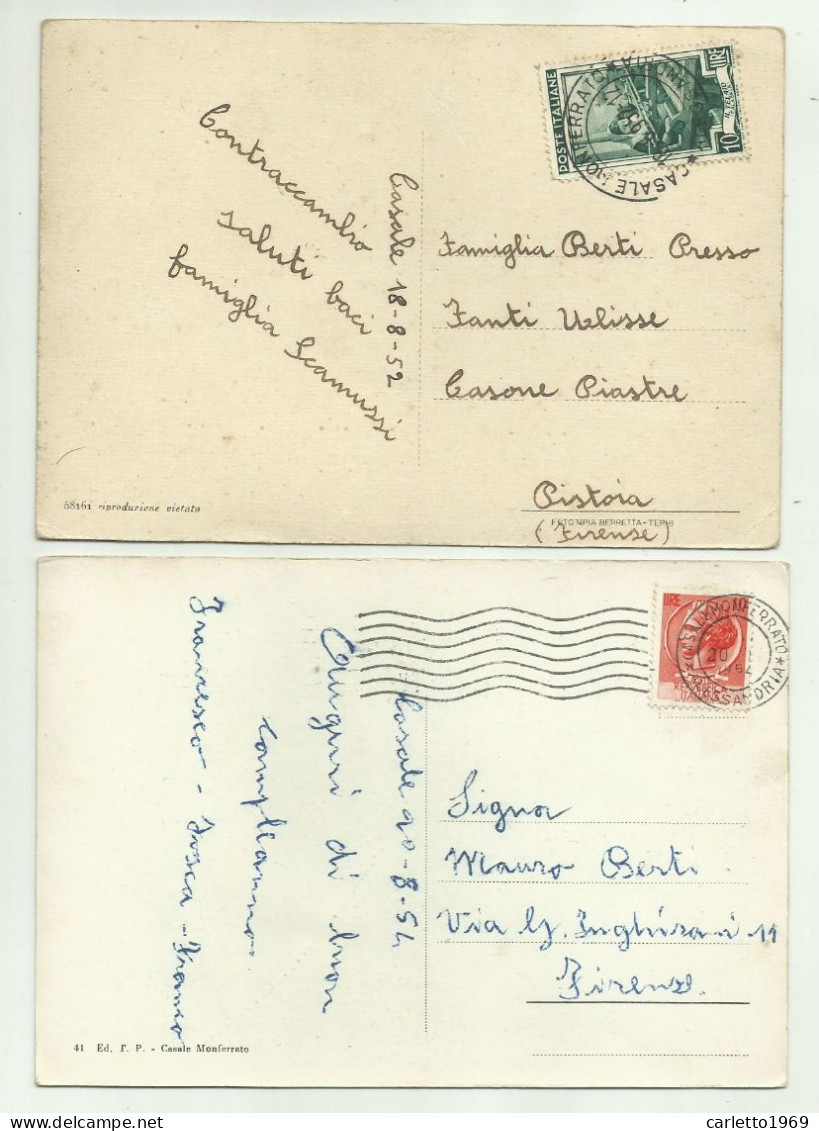 POSTE ITALIANE
LIRE
10
CASALE MONFERRATO
Contraccambio
saluti baci
famiglia Scamussi
Casale 18-8-52
Famiglia Berti Presso
Fanti Ulisse
Casone Piastre
Pistoia
(Firenze)
58161 riproduzione vietata
FOTOTIPIA BERRETTA - TERNI
LIRE
CASALE MONFERRATO
ALESSANDRIA
1954
Casale 20-8-54
Auguri di buon
compleanno
Francesco - Tosca - Franco
Signor
Mauro Berti
Via G. Inghirami 11
Firenze.
41 Ed. I. P. - Casale Monferrato
carletto1969